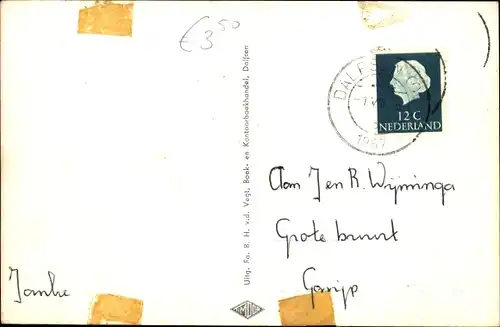 € 3 50
DALFSEN
1967
12 C
NEDERLAND
Uitg. Fa. B. H. v.d. Vegt, Boek- en Kantoorboekhandel, Dalfsen
Aan J en R. Wijminga
Grote buurt
Garijp
Janke